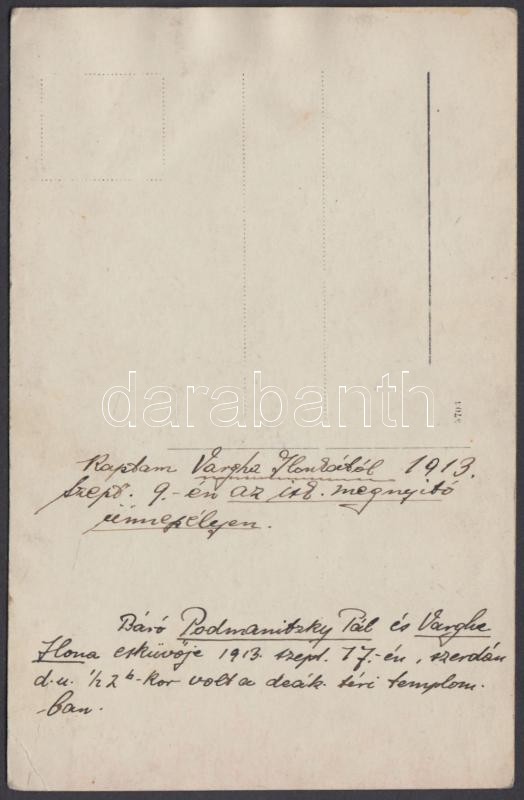 darabanth
5703
Kaptam Vargha Ilonkától 1913.
szept. 9.-én az isk. megnyitó
ünnepélyen.
Báró Podmanitzky Pál és Vargha
Ilona esküvője 1913. szept. 17.-én, szerdán
d.u. ½ 2ʰ-kor volt a deák téri templom-
-ban.